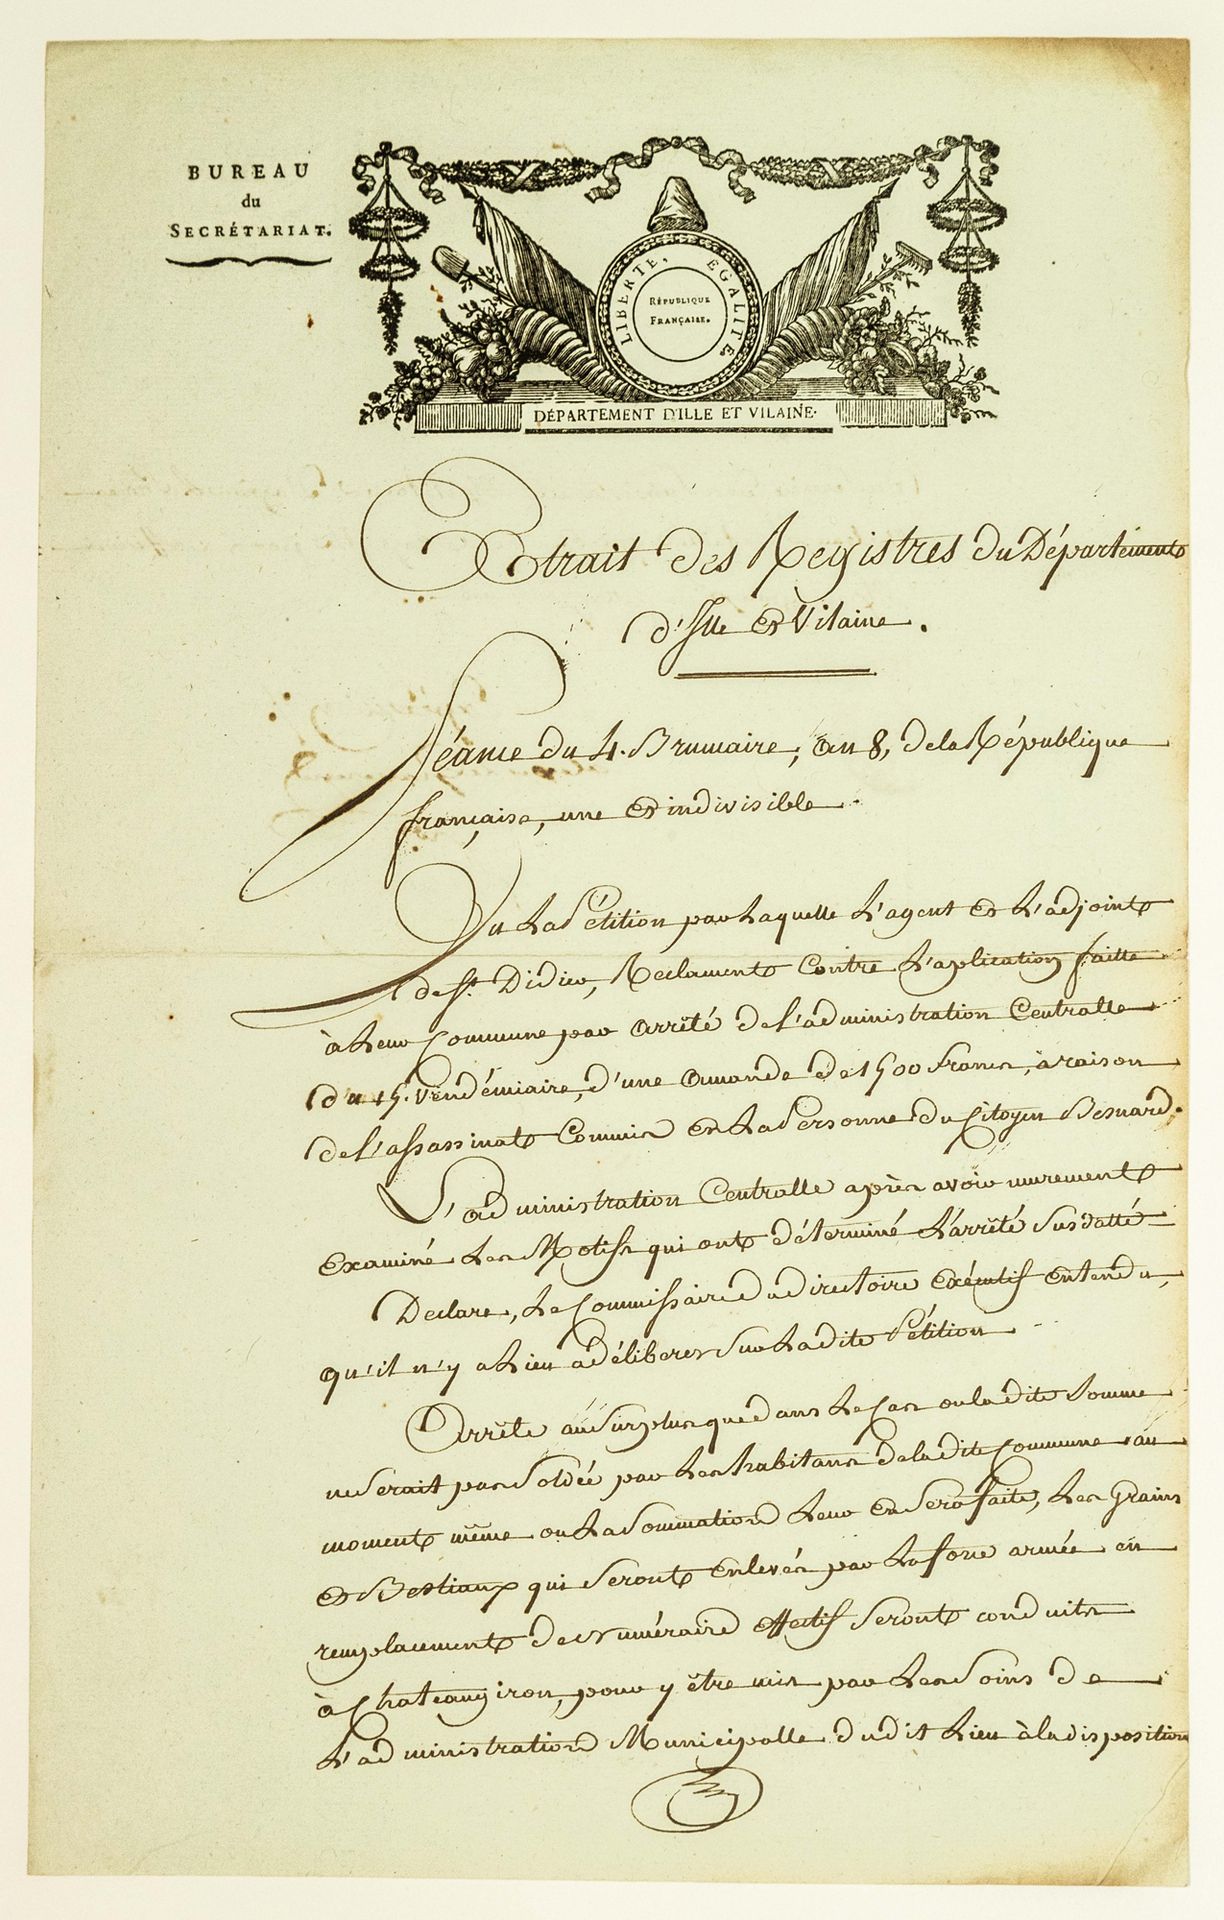 BUREAU
du
SECRÉTARIAT.
LIBERTÉ, ÉGALITÉ
RÉPUBLIQUE
FRANÇAISE.
DÉPARTEMENT D'ILLE ET VILAINE.
Extrait des Registres du Département
d'Ille et Vilaine.
Séance du 4. Brumaire, an 8, de la République
française, une et indivisible.
Vu la Pétition par laquelle l'agent et l'adjoint
de St. Didier, Reclament Contre l'aplication faitte
à leur Commune par arrêté de l'administration Centralle
du 15. Vendémiaire, d'une amande de 1500 francs, à raison
de l'assassinat Commis en la Personne du Citoyen Besnard.
L'administration Centralle après avoir murement
examiné les Motifs qui ont déterminé l'arrêté Susdatté
Declare, le Commissaire du directoire exécutif entendu,
qu'il n'y a lieu a délibérer Sur la dite Pétition
Arrête au Surplus que dans le Cas ou la dite Somme
ne Serait pas Soldée par les habitans de la dite Commune au
moment même ou la Sommation leur en Sera faite, les Grains
et Bestiaux qui Seront enlevés par la force armée en
remplacement de numéraire effectif Seront conduits
à Chateaugiron, pour y être mis par les Soins de
l'administration Municipalle dudit lieu à la disposition